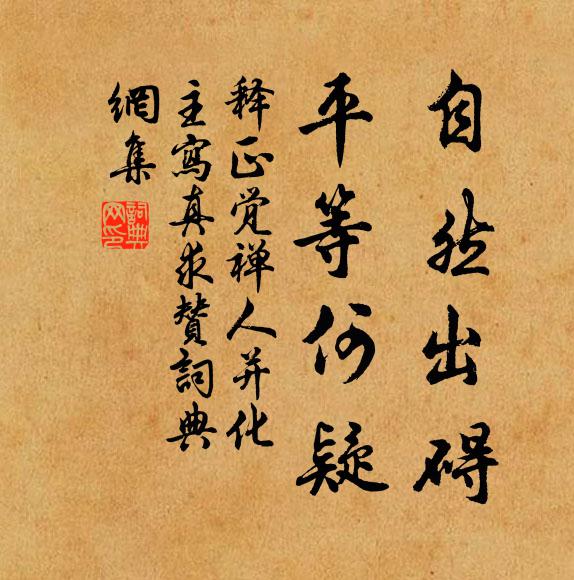 自然出碍
平等何疑
释正觉禅人并化
主写真求赞词典
網集
詞典
网印